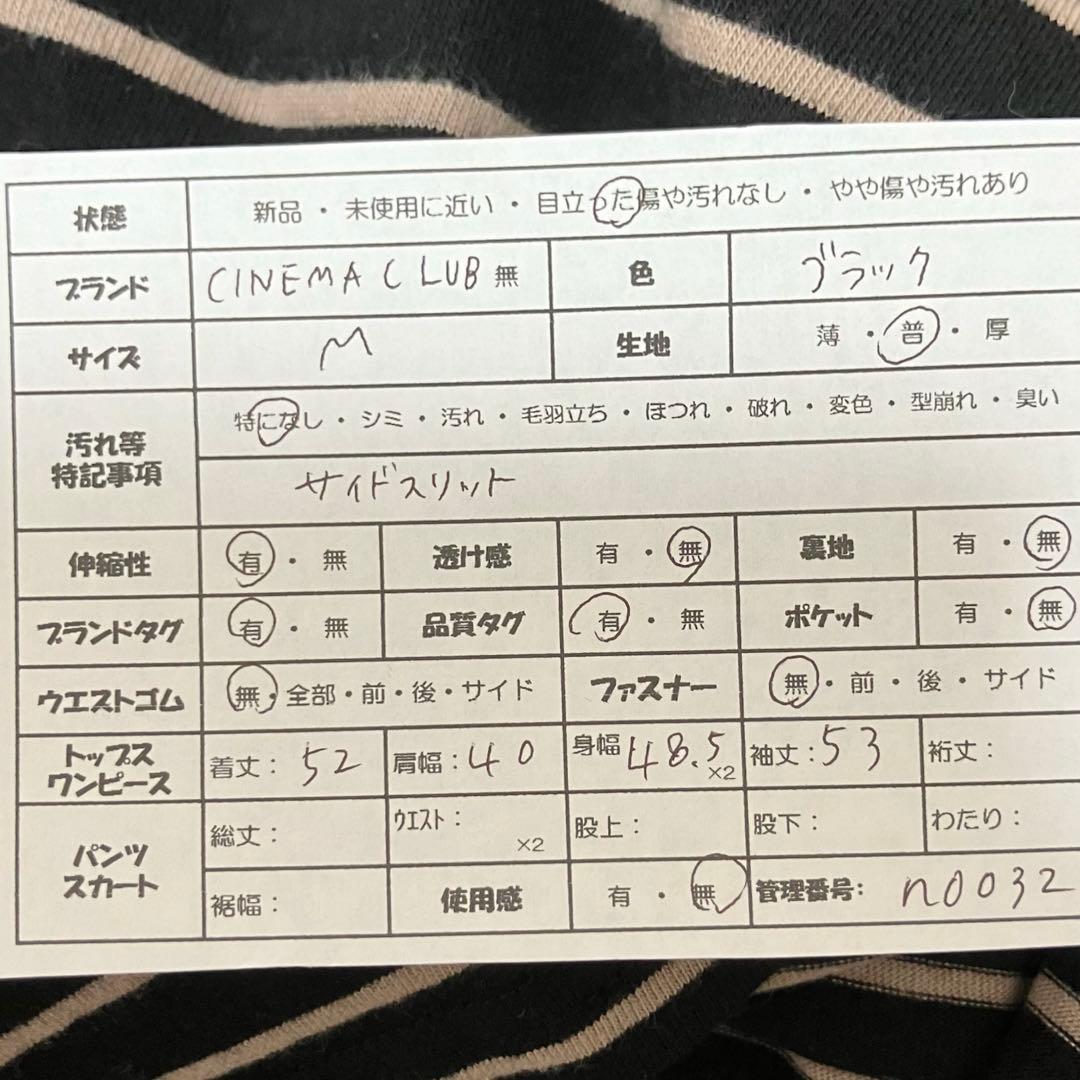 状態 新品 ・ 未使用に近い ・ 目立った傷や汚れなし ・ やや傷や汚れあり
ブランド CINEMA CLUB 無 色 ブラック
サイズ M 生地 薄 ・ 普 ・ 厚
汚れ等特記事項 特になし ・ シミ ・ 汚れ ・ 毛羽立ち ・ ほつれ ・ 破れ ・ 変色 ・ 型崩れ ・ 臭い
サイドスリット
伸縮性 有 ・ 無 透け感 有 ・ 無 裏地 有 ・ 無
ブランドタグ 有 ・ 無 品質タグ 有 ・ 無 ポケット 有 ・ 無
ウエストゴム 無・全部・前・後・サイド ファスナー 無 ・ 前 ・ 後 ・ サイド
トップスワンピース 着丈：52 肩幅：40 身幅 48.5 ×2 袖丈：53 裄丈：
パンツスカート 総丈： ウエスト： ×2 股上： 股下： わたり：
裾幅： 使用感 有 ・ 無 管理番号： n0032